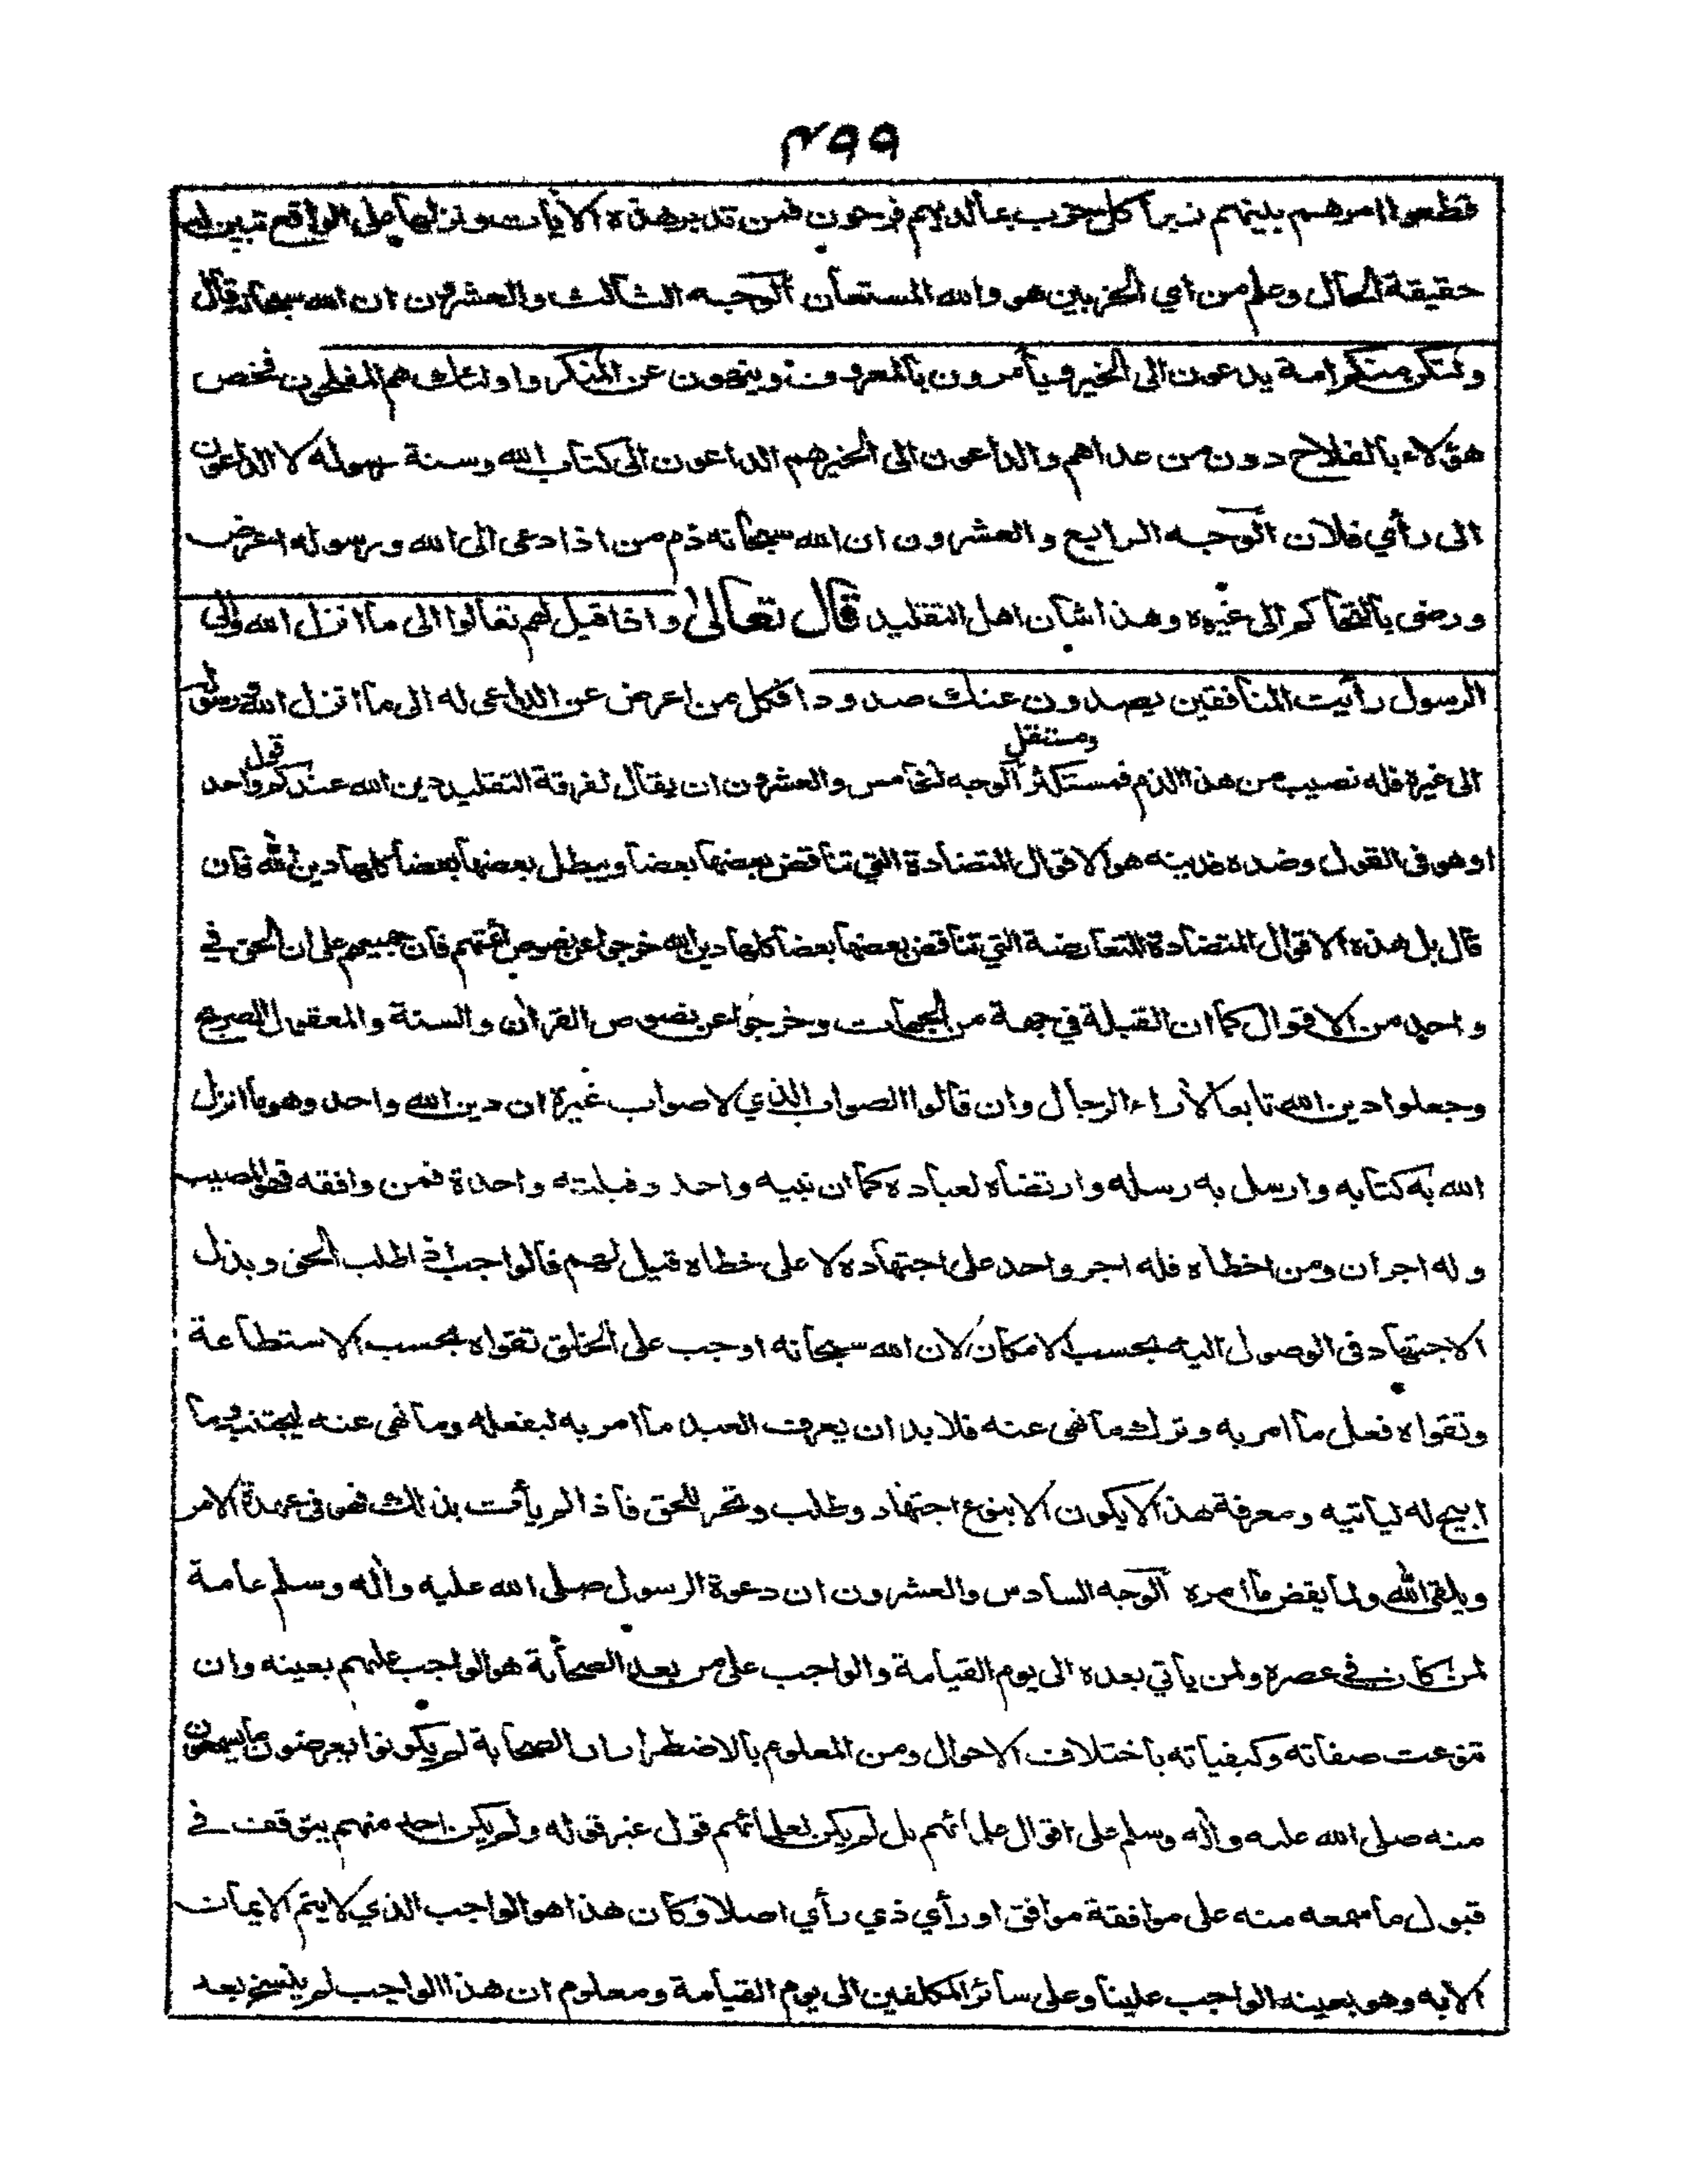 ٤٩٩
قطعوا امرهم بينهم زبرا كل حزب بما لديهم فرحون فمن تدبر هذه الأيات ونزلها على الواقع تبين له
حقيقة الحال وعلم من اي الحزبين هو والله المستعان الوجه الثالث والعشرون ان الله سبحانه قال
ولتكن منكم امة يدعون الى الخير ويأمرون بالمعروف وينهون عن المنكر واولئك هم المفلحون فخص
هؤلاء بالفلاح دون من عداهم والداعون الى الخير هم الداعون الى كتاب الله وسنة رسوله لا الداعون
الى رأي فلان الوجه الرابع والعشرون ان الله سبحانه ذم من اذا دعى الى الله ورسوله اعرض
ورضى بالتحاكم الى غيره وهذا شان اهل التقليد قال تعالى واذا قيل لهم تعالوا الى ما انزل الله والى
الرسول رأيت المنافقين يصدون عنك صدودا فكل من اعرض عن الداعى له الى ما انزل الله ورسوله
الى غيره فله نصيب من هذا الذم فمستكثر ومستقل الوجه الخامس والعشرون ان يقال لفرقة التقليد دين الله عندكم قول واحد
او هو فى القول وضده فدينه هو الاقوال المتضادة التي تناقض بعضها بعضا ويبطل بعضها بعضا كلها دين الله فان
قال بل هذه الاقوال المتضادة المتعارضة التي تناقض بعضها بعضا كلها دين الله خرجوا عن نصوص ائمتهم فان جميعهم على ان الحق في
واحد من الاقوال كما ان القبلة في جهة من الجهات وخرجوا عن نصوص القرآن والسنة والمعقول الصريح
وجعلوا دين الله تابعا لأراء الرجال وان قالوا الصواب الذي لا صواب غيره ان دين الله واحد وهو ما انزل
الله به كتابه وارسل به رسله وارتضاه لعباده كما ان نبيه واحد وقبلته واحدة فمن وافقه فهو المصيب
وله اجران ومن اخطاه فله اجر واحد على اجتهاده لا على خطاه قيل لهم فالواجب اذا طلب الحق وبذل
الاجتهاد فى الوصول اليه بحسب الامكان لان الله سبحانه اوجب على الخلق تقواه بحسب الاستطاعة
وتقواه فعل ما امر به وترك ما نهى عنه فلا بد ان يعرف العبد ما امر به ليفعله وما نهى عنه ليجتنبه وما
ابيح له ليأتيه ومعرفة هذا لا يكون الا بنوع اجتهاد وطلب وتحر للحق فاذا لم يأت بذلك فهو فى عهدة الامر
ويلقى الله ولما يقض ما امره الوجه السادس والعشرون ان دعوة الرسول صلى الله عليه وأله وسلم عامة
لمن كان في عصره ولمن يأتي بعده الى يوم القيامة والواجب على من بعد الصحابة هو الواجب عليهم بعينه وان
تنوعت صفاته وكيفياته باختلاف الاحوال ومن المعلوم بالاضطرار ان الصحابة لم يكونوا يعرضون ما يسمعون
منه صلى الله عليه وأله وسلم على اقوال علمائهم بل لم يكن لعلمائهم قول غير قوله ولم يكن احد منهم يتوقف في
قبول ما سمعه منه على موافقة موافق او رأي ذي رأي اصلا وكان هذا هو الواجب الذي لا يتم الايمان
الا به وهو بعينه الواجب علينا وعلى سائر المكلفين الى يوم القيامة ومعلوم ان هذا الواجب لم ينسخ بعد